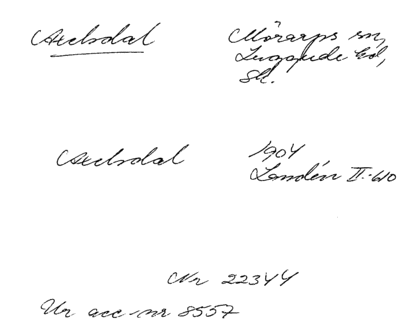 Axelsdal
Mörarps sn,
Luggude hd,
Sk.
Axelsdal
1904
Landén II:610
Nr 22344
Ur acc nr 8557